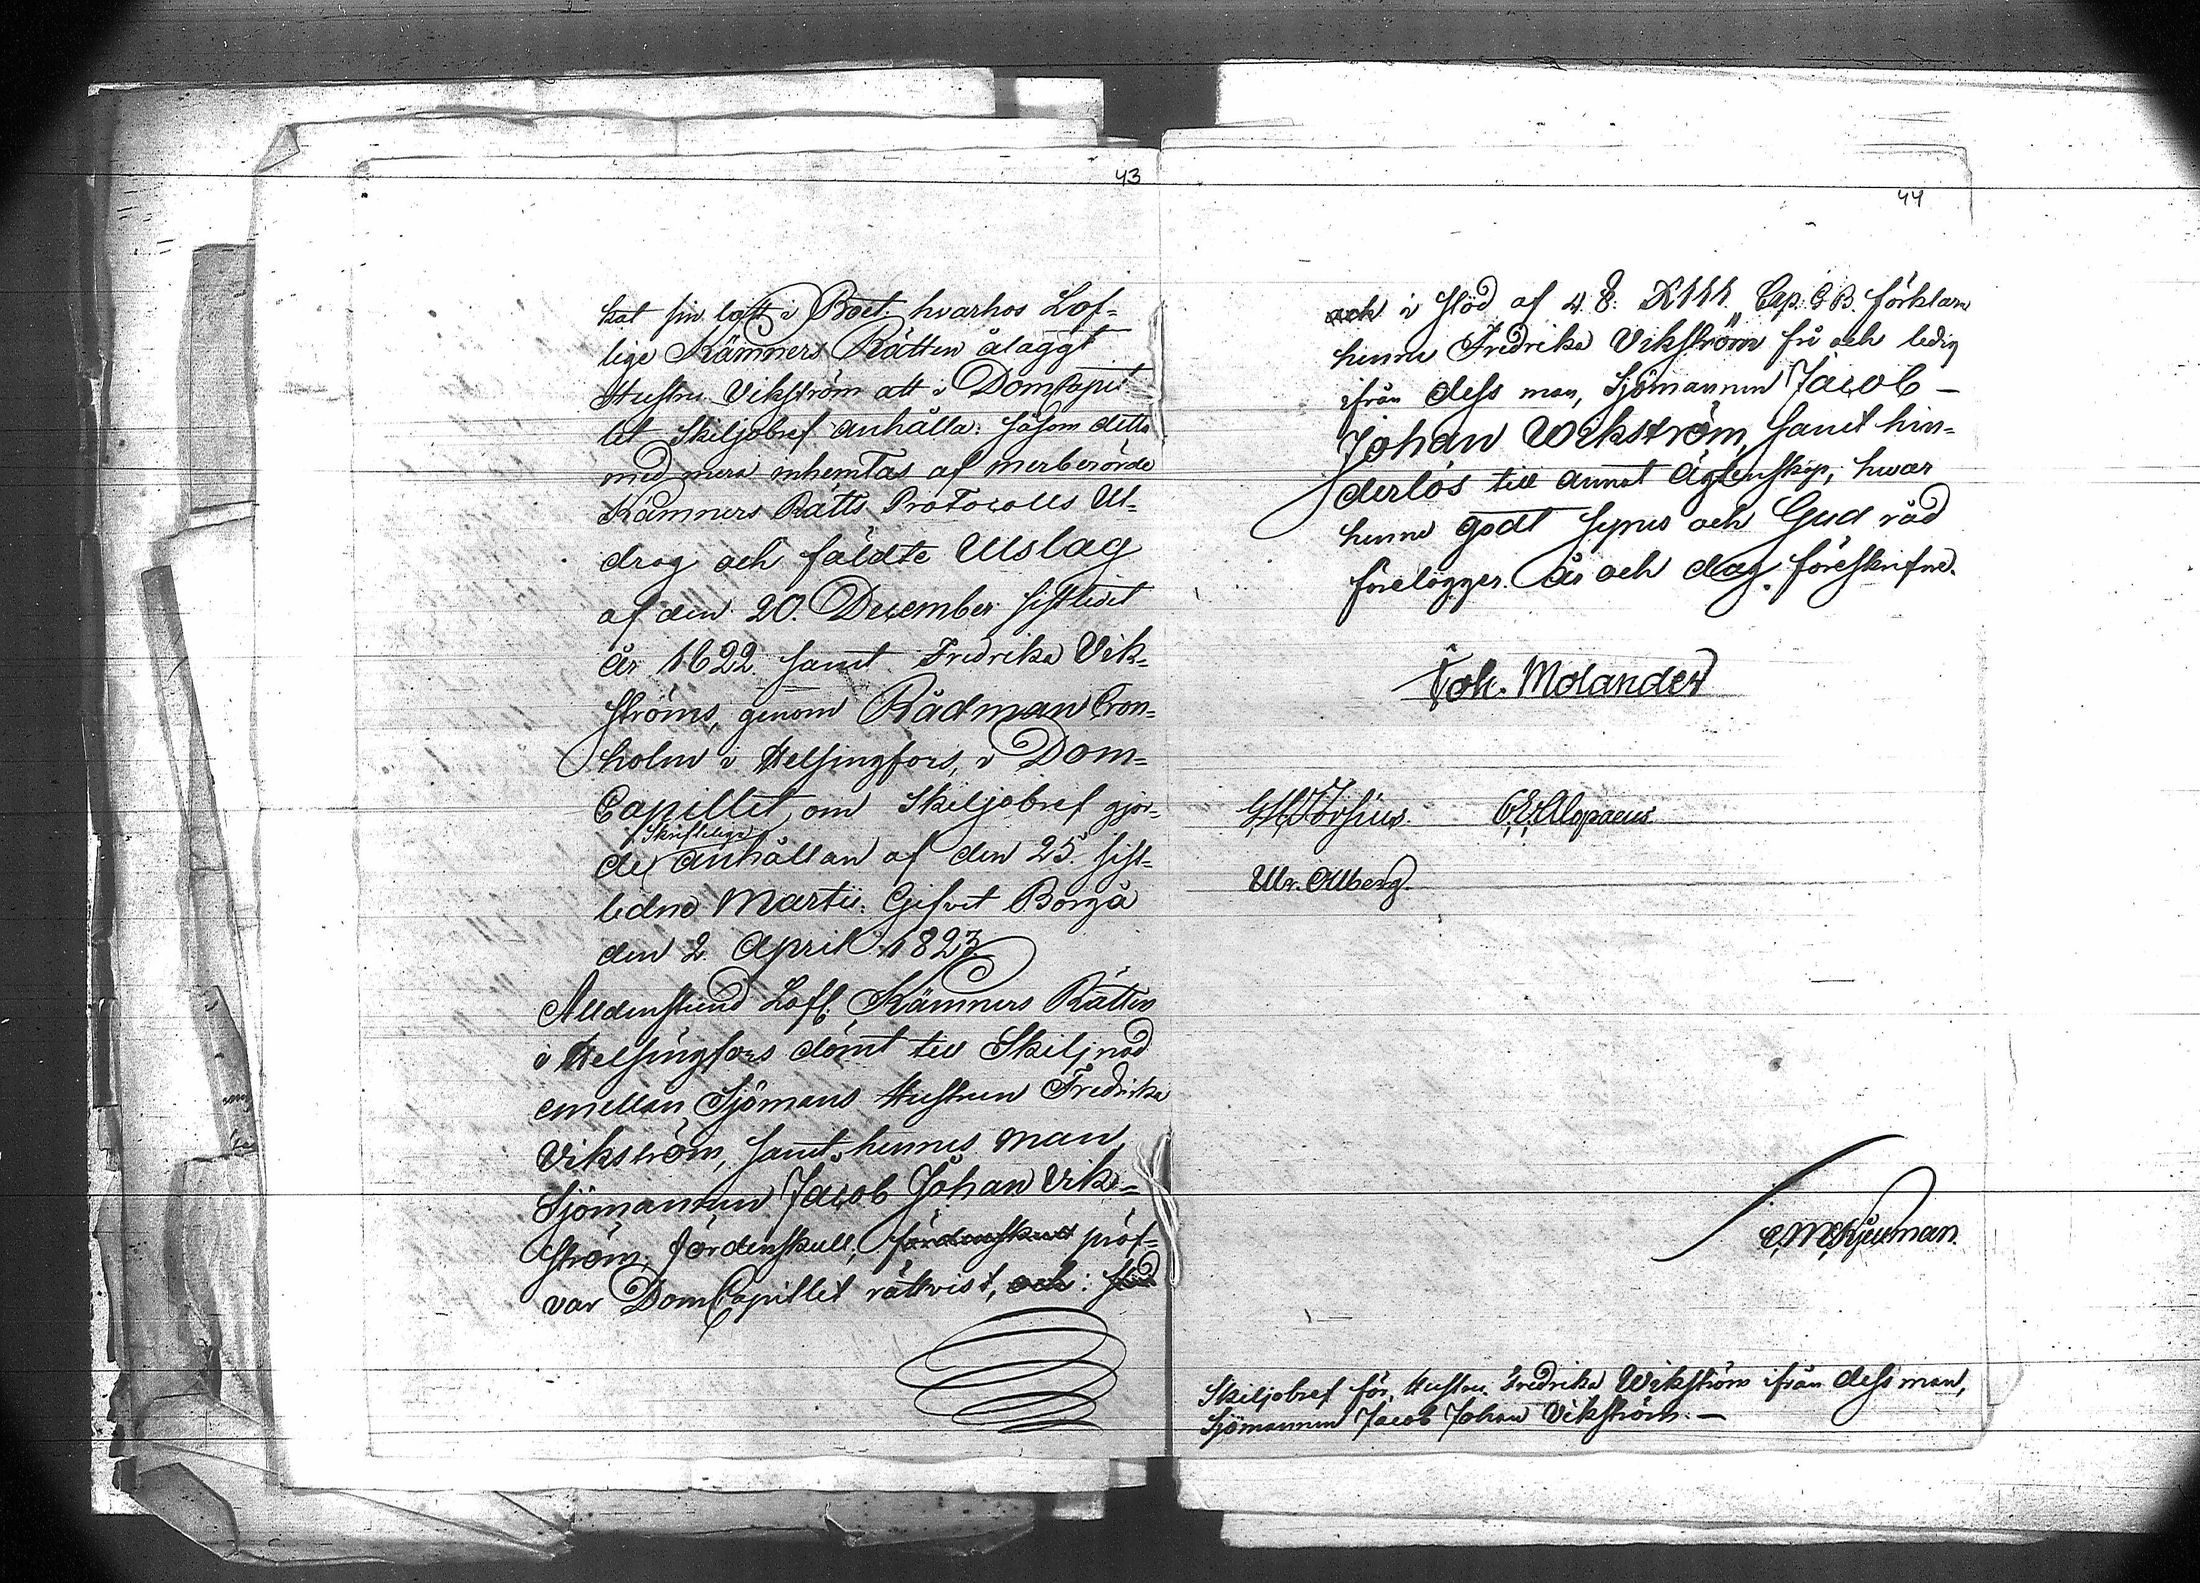 43
kat sin lott i Boet: hvarhos Lof=
lige Kämners Rätten ålaggt
Hustru Vikström att i DomCapit
let Skiljobref anhålla: såsom detta
med mera inhemtas af merberörde
Kämners Rätts Protocolls Ut=
drag och fäldte Utslag
af den 20. December sistledit
år 1822 samt Fredrika Vik=
ströms, genom Rådman Cron=
holm i Helsingfors, i Dom=
Capitlet om Skiljobref gjor=
skriftliga
de anhållan af den 25 sist=
ledne Martii. Gifvet Borgå
den 2 April 1823.
Alldenstund Lofl. Kämners Rätten
i Helsingfors dömt till Skiljnad
emellan Sjömans Hustrun Fredrika
Vikström, samt hennes man,
Sjömannen Jacob Johan Vik=
ström; fördenskull, fördenskull pröf=
var DomCapitlet rättvist, och: stöd
44
och i stöd af 4 §. XIII Cap. G.B. förklara
henne Fredrika Vikström fri och ledig
ifrån dess man, Sjömannen Jacob –
Johan Wikström, samt hin=
derlös till annat Ägtenskap, hwar
henne godt synes och Gud råd
förelägger. År och dag, föreskrifne.
Joh. Molander
Alopaeus
Ur. Ollberg.
Skiljobref för Hustru Fredrika Wikström ifrån dess man,
Sjömannen Jacob Johan Vikström. –